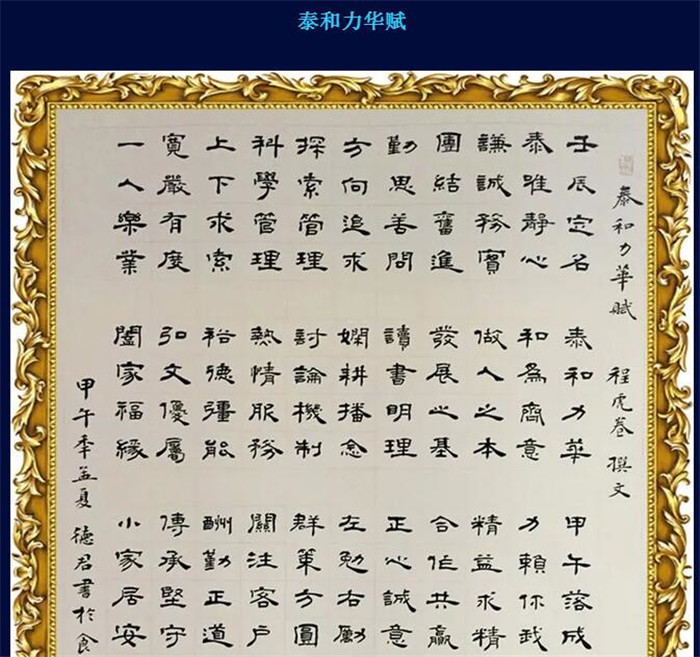 泰和力华赋
泰和力華賦 程虎卷 撰文
壬辰定名 泰和力華 甲午落成
泰唯靜心 和為齊意 力賴你我
謙誠務實 做人之本 精益求精
團結奮進 發展之基 合作共贏
勤思善問 讀書明理 正心誠意
方向追求 嫻耕播念 左勉右勵
探索管理 討論機制 群策方圓
科學管理 熱情服務 關注客戶
上下求索 裕德彊能 酬勤正道
寬嚴有度 弘文優屬 傳承堅守
一人樂業 闔家福緣 小家居安
甲午秊孟夏 德君書於食